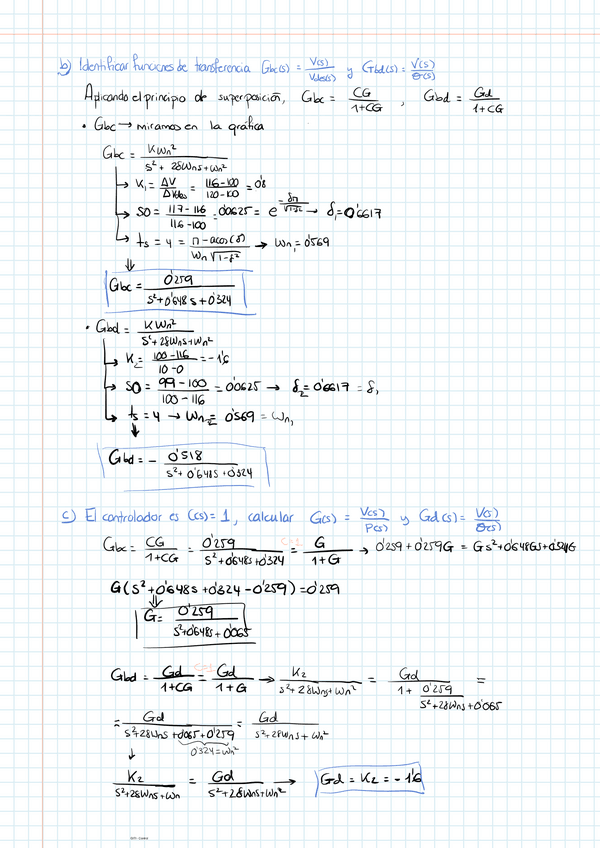 b) Identificar funciones de transferencia Gbc(s) = V(s)/Vdes(s) y Gbd(s) = V(s)/Θ(s)
Aplicando el principio de superposición, Gbc = CG/(1+CG) , Gbd = Gd/(1+CG)
• Gbc → miramos en la gráfica
Gbc = KWn²/(s² + 2δWns + Wn²)
→ K₁ = ΔV/ΔVdes = (116-100)/(120-100) = 0'8
→ SO = (117-116)/(116-100) = 0'0625 = e^(-δπ/√(1-δ²)) → δ₁ = 0'6617
→ ts = 4 = (π - acos(δ))/(Wn√(1-δ²)) → Wn₁ = 0'569
⇓
Gbc = 0'259/(s² + 0'648s + 0'324)
• Gbd = KWn²/(s² + 2δWns + Wn²)
→ K₂ = (100-116)/(10-0) = -1'6
→ SO = (99-100)/(100-116) = 0'0625 → δ₂ = 0'6617 = δ₁
→ ts = 4 → Wn₂ = 0'569 = Wn₁
↓
Gbd = - 0'518/(s² + 0'648s + 0'324)
c) El controlador es C(s) = 1, calcular G(s) = V(s)/P(s) y Gd(s) = V(s)/Θ(s)
Gbc = CG/(1+CG) = 0'259/(s² + 0'648s + 0'324) =(C=1) G/(1+G) → 0'259 + 0'259G = Gs² + 0'648Gs + 0'324G
G(s² + 0'648s + 0'324 - 0'259) = 0'259
⇓
G = 0'259/(s² + 0'648s + 0'065)
Gbd = Gd/(1+CG) =(C=1) Gd/(1+G) → K₂/(s² + 2δWns + Wn²) = Gd/(1 + 0'259/(s² + 2δWns + 0'065)) =
= Gd/(s² + 2δWns + 0'065 + 0'259) = Gd/(s² + 2δWns + Wn²)
0'324 = Wn²
↓
K₂/(s² + 2δWns + Wn) = Gd/(s² + 2δWns + Wn²) → Gd = K₂ = -1'6